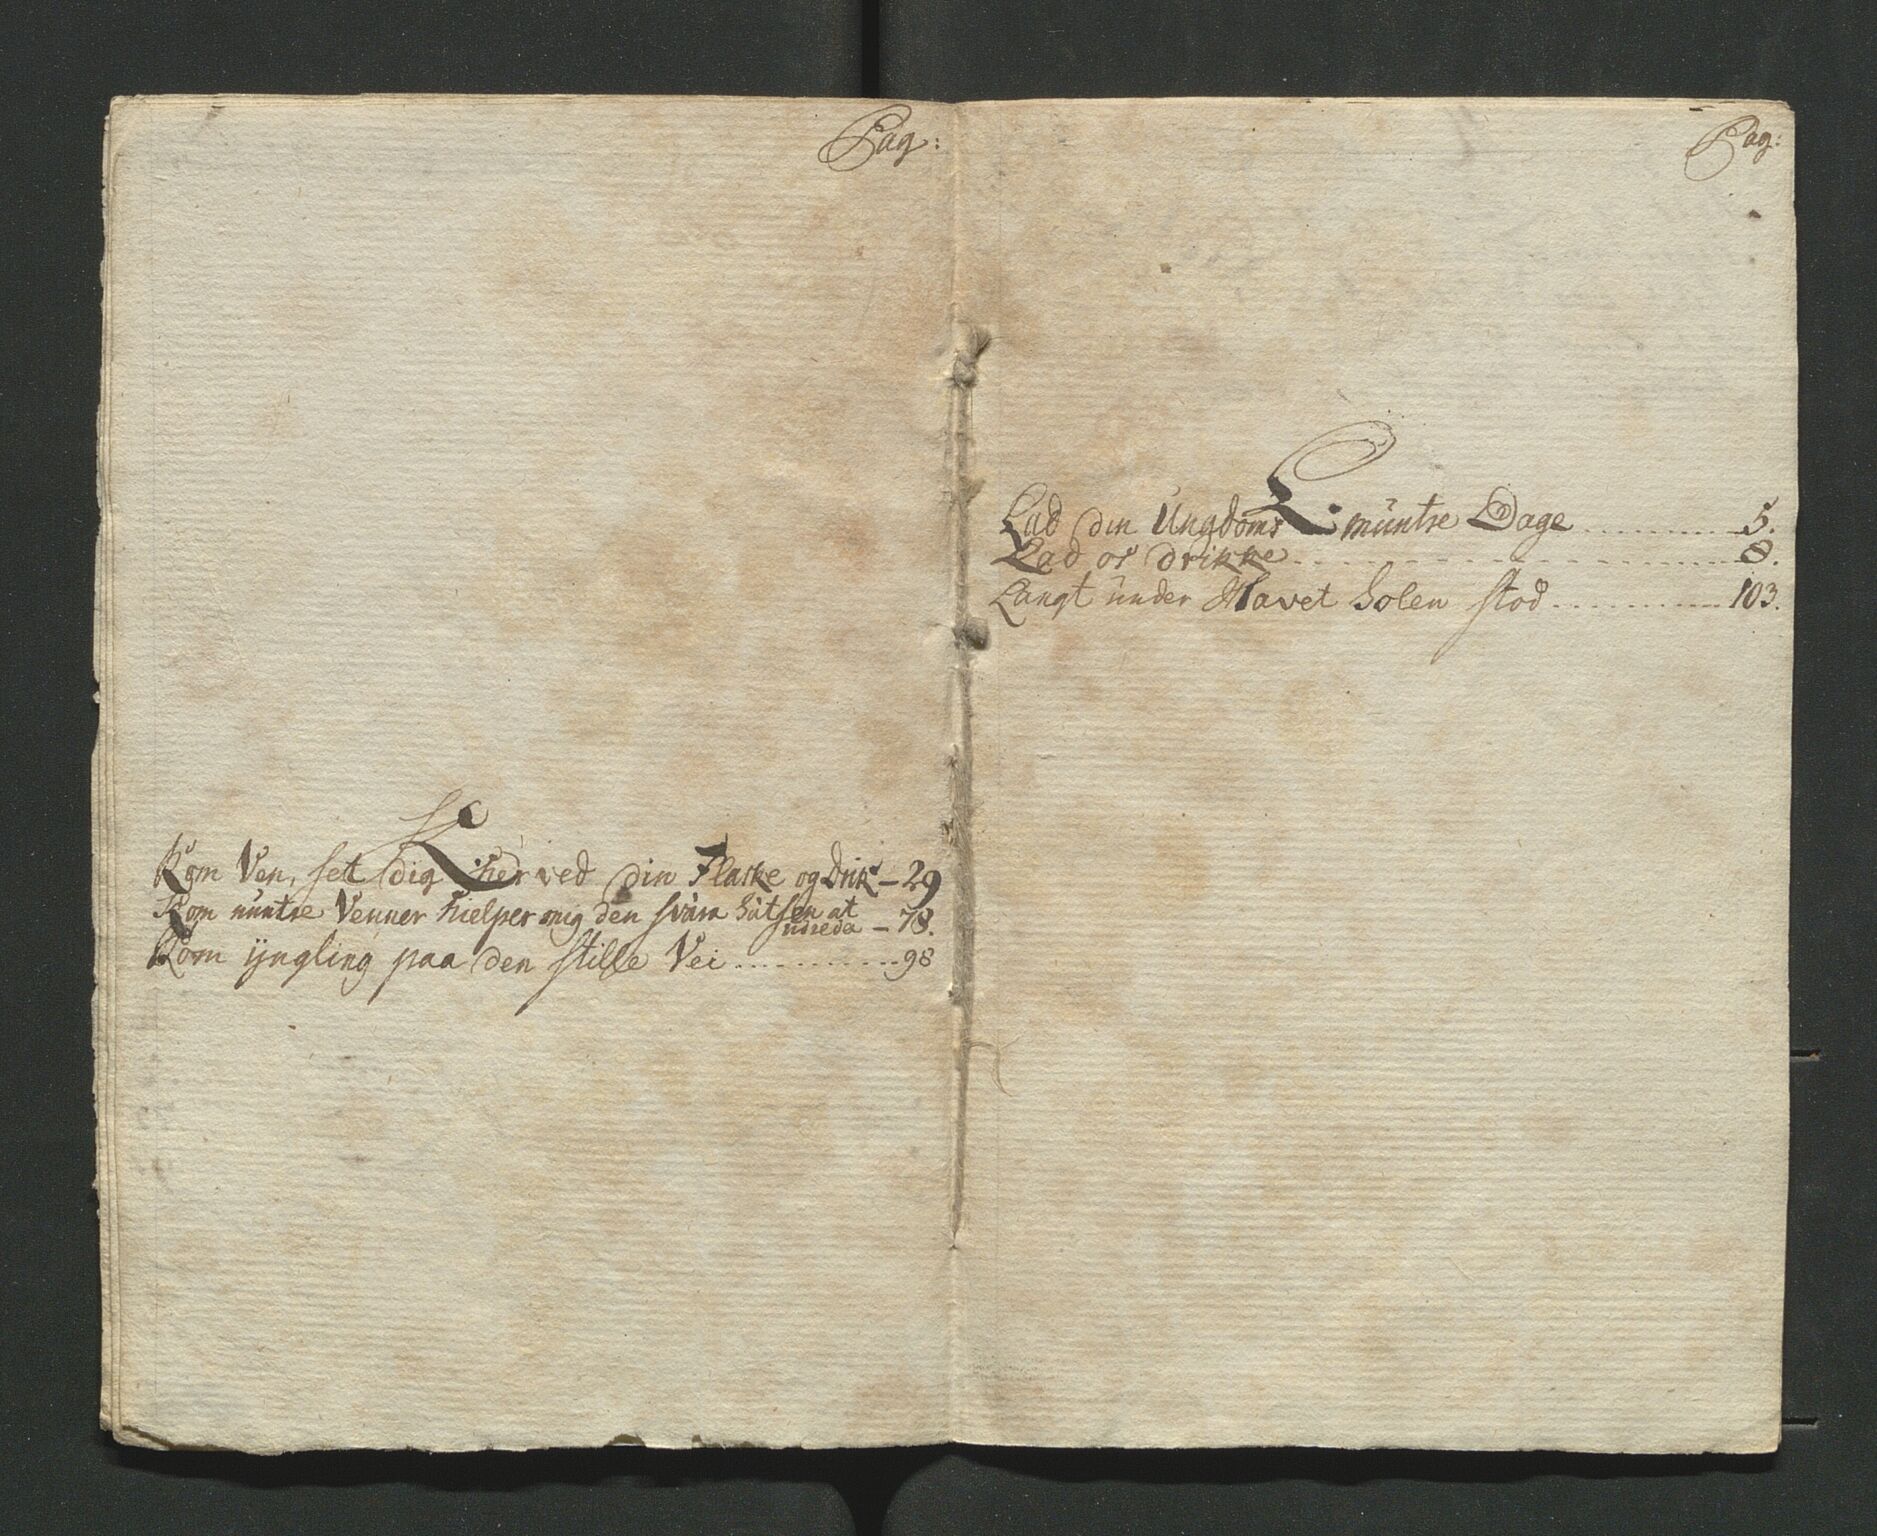 Pag:
K.
Kom Ven, sett dig her ved din Flaske og Drik – 29
Kom muntre Venner hielper mig den svåra håtsen at
udreda – 78.
Kom ÿngling paa den stille Vei ........... 98
Pag:
L.
Lad din Ungdoms müntre Dage ............ 5.
Lad os drikke ............ 8.
Langt ünder Havet Solen stod ............ 103.